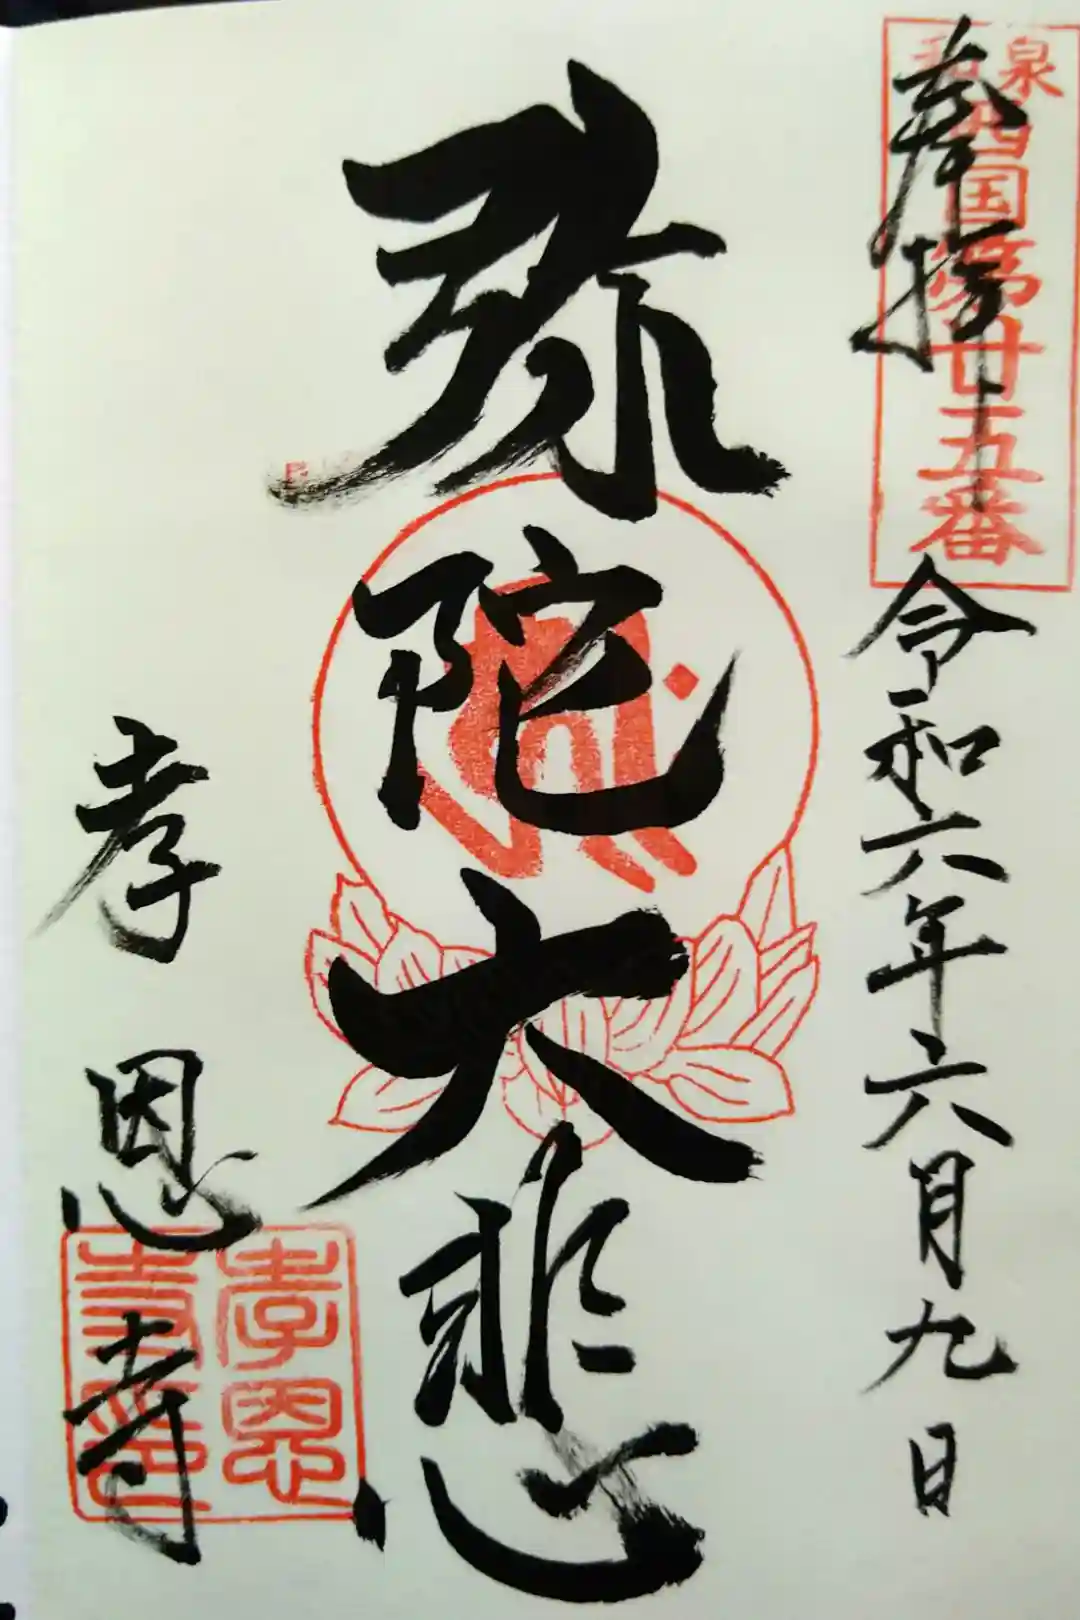 和泉
西国第廿五番
奉拝
令和六年六月九日
弥陀大悲
孝恩寺
孝恩
寺印